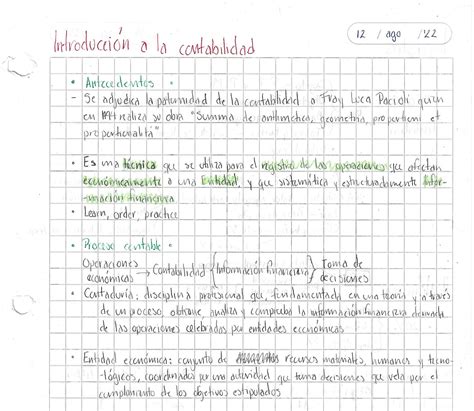 12 / ago / 22
Introducción a la contabilidad
• Antecedentes •
- Se adjudica la paternidad de la contabilidad a Fray Luca Pacioli quien
en realiza su obra "Summa de arithmetica, geometria, proportioni et
proportionalita"
• Es una técnica que se utiliza para el registro de las operaciones que afectan
económicamente a una Entidad, y que sistemática y estructuradamente infor-
-mación financiera
• Learn, order, practice
• Proceso contable •
Operaciones económicas → Contabilidad { Información financiera } Toma de decisiones
• Contaduría: disciplina profesional que, fundamentada en una teoría y a través
de un proceso, obtiene, analiza y comprueba la información financiera derivada
de las operaciones celebradas por entidades económicas
• Entidad económica: conjunto de recursos materiales, humanos y tecno-
-lógicos, coordinados por una autoridad que toma decisiones que vela por el
cumplimiento de los objetivos estipulados